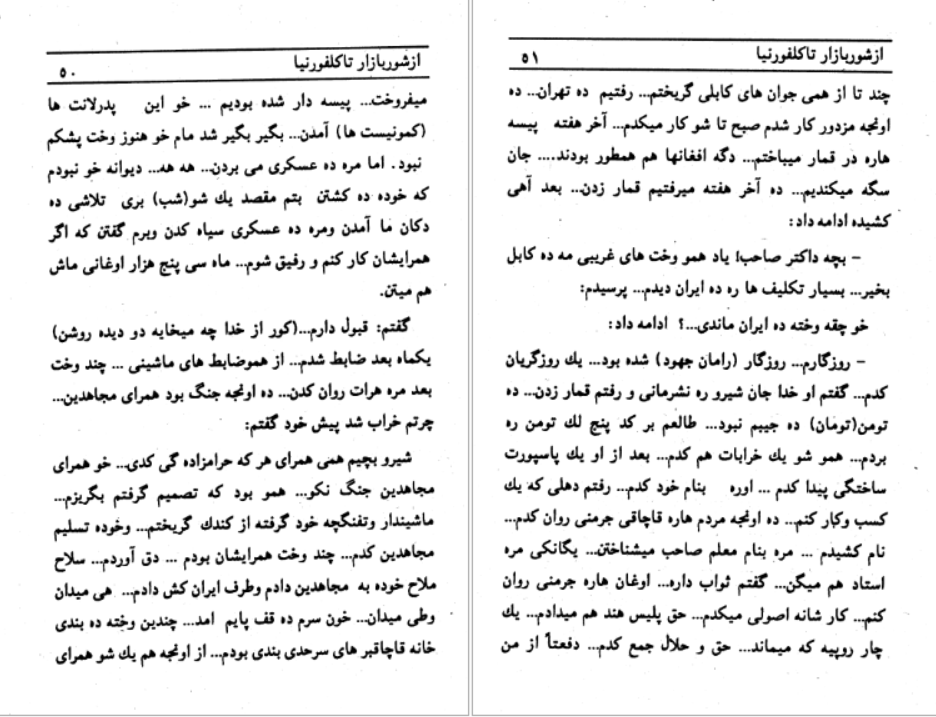 ازشوربازار تاکلفورنیا
۵۰
میفروخت... پیسه دار شده بودیم ... خو این پدرلانت ها
(کمونیست ها) آمدن... بگیر بگیر شد مام خو هنوز وخت پشکم
نبود. اما مره ده عسکری می بردن... هه هه... دیوانه خو نبودم
که خوده ده کشتن بتم مقصد یك شو(شب) بری تلاشی ده
دکان ما آمدن ومره ده عسکری سیاه کدن وبرم گفتن که اگر
همرایشان کار کنم و رفیق شوم... ماه سی پنج هزار اوغانی ماش
هم میتن.
گفتم: قبول دارم...(کور از خدا چه میخایه دو دیده روشن)
یکماه بعد ضابط شدم... از هموضابط های ماشینی ... چند وخت
بعد مره هرات روان کدن... ده اونجه جنگ بود همرای مجاهدین...
چرتم خراب شد پیش خود گفتم:
شیرو بچیم همی همرای هر که حرامزاده گی کدی... خو همرای
مجاهدین جنگ نکو... همو بود که تصمیم گرفتم بگریزم...
ماشیندار وتفنگچه خود گرفته از کندك گریختم... وخوده تسلیم
مجاهدین کدم... چند وخت همرایشان بودم ... دق آوردم... سلاح
ملاح خوده به مجاهدین دادم وطرف ایران کش دادم... هی میدان
وطی میدان... خون سرم ده قف پایم امد... چندین وخته ده بندی
خانه قاچاقبر های سرحدی بندی بودم... از اونجه هم یك شو همرای
ازشوربازار تاکلفورنیا
۵۱
چند تا از همی جوان های کابلی گریختم... رفتیم ده تهران... ده
اونجه مزدور کار شدم صبح تا شو کار میکدم... آخر هفته پیسه
هاره در قمار میباختم... دگه افغانها هم همطور بودند.... جان
سگه میکندیم... ده آخر هفته میرفتیم قمار زدن... بعد آهی
کشیده ادامه داد:
– بچه داکتر صاحب! یاد همو وخت های غریبی مه ده کابل
بخیر... بسیار تکلیف ها ره ده ایران دیدم... پرسیدم:
خو چقه وخته ده ایران ماندی...؟ ادامه داد:
– روزگارم... روزگار (رامان جهود) شده بود... یك روزگریان
کدم... گفتم او خدا جان شیرو ره نشرمانی و رفتم قمار زدن... ده
تومن(تومان) ده جیبم نبود... طالعم بر کد پنج لك تومن ره
بردم... همو شو یك خرابات هم کدم... بعد از او یك پاسپورت
ساختگی پیدا کدم ... اوره بنام خود کدم... رفتم دهلی که یك
کسب وکار کنم... ده اونجه مردم هاره قاچاقی جرمنی روان کدم...
نام کشیدم ... مره بنام معلم صاحب میشناختن... یگانکی مره
استاد هم میگن... گفتم ثواب داره... اوغان هاره جرمنی روان
کنم... کار شانه اصولی میکدم... حق پلیس هند هم میدادم... یك
چار روپیه که میماند... حق و حلال جمع کدم... دفعتاً از من